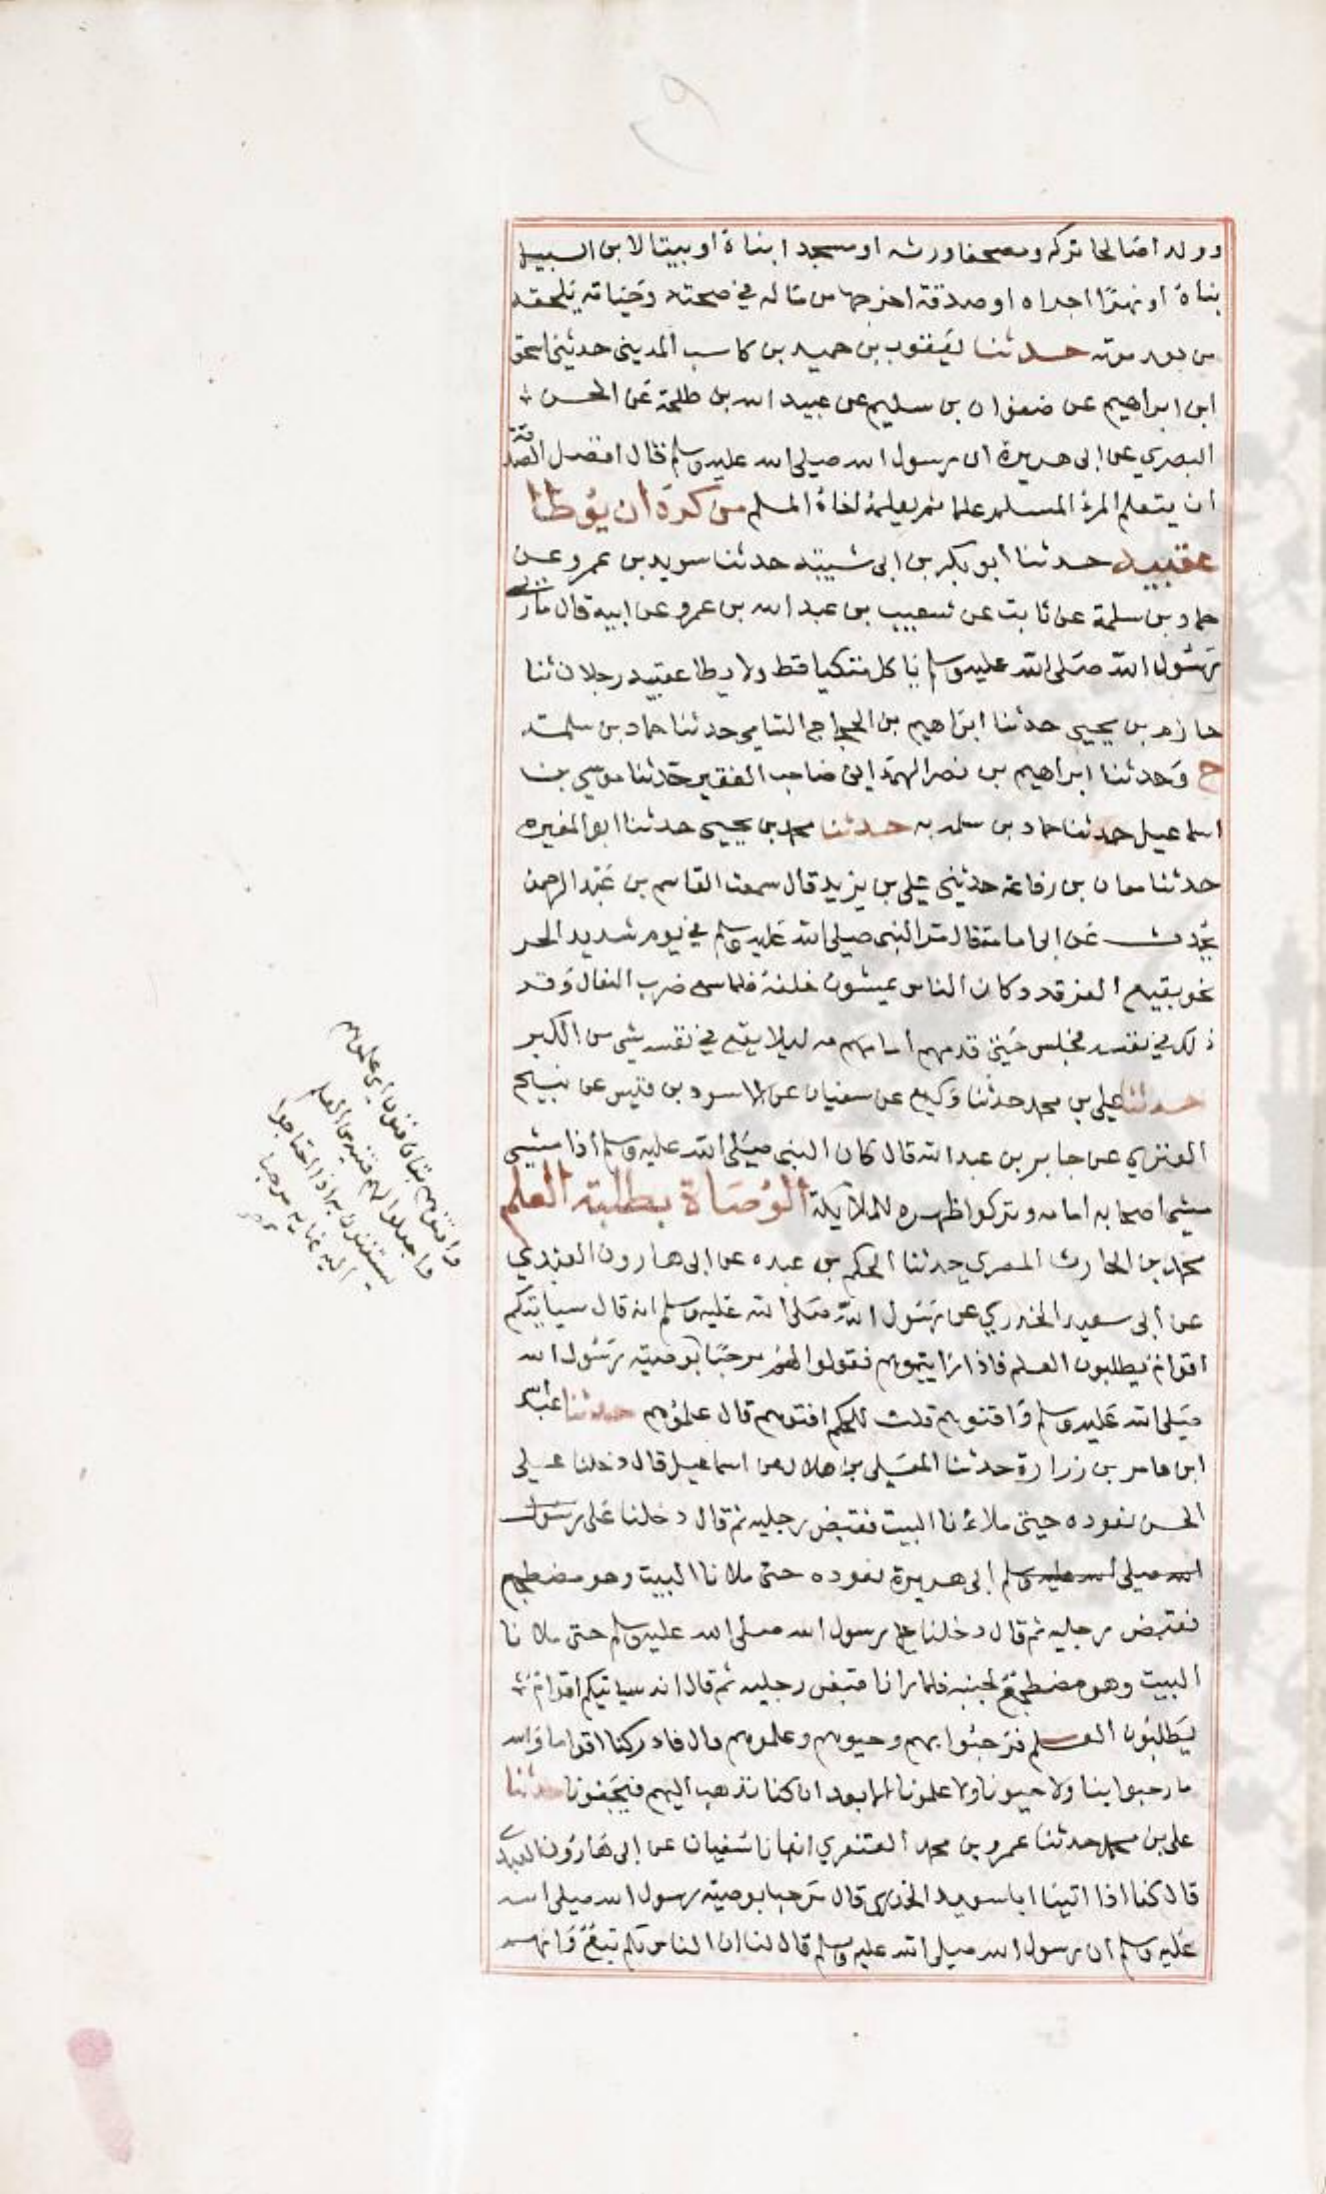 وولدا صالحا تركه ومصحفا ورثه او مسجدا بناه او بيتا لابن السبيل
بناه او نهرا اجراه او صدقة اخرجها من ماله في صحته وحياته يلحقه
من بعد موته حدثنا يعقوب بن حميد بن كاسب المديني حدثني اسحق
ابن ابراهيم عن صفوان بن سليم عن عبيد الله بن طلحة عن الحسن
البصري عن ابي هريرة ان رسول الله صلى الله عليه وسلم قال افضل الصدقة
ان يتعلم المرء المسلم علما ثم يعلمه اخاه المسلم من كره ان يوطا
عقبيه حدثنا ابو بكر بن ابي شيبة حدثنا سويد بن عمرو عن
حماد بن سلمة عن ثابت عن شعيب بن عبد الله بن عمرو عن ابيه قال ما رئي
رسول الله صلى الله عليه وسلم ياكل متكيا قط ولا يطا عقبيه رجلان ثنا
حازم بن يحيى حدثنا ابراهيم بن الحجاج الشامي حدثنا حماد بن سلمة
ح وحدثنا ابراهيم بن نصر الهمداني صاحب القفيز حدثنا موسى بن
اسماعيل حدثنا حماد بن سلمه به حدثنا محمد بن يحيى حدثنا ابو المغيره
حدثنا معان بن رفاعة حدثني علي بن يزيد قال سمعت القاسم بن عبد الرحمن
يحدث عن ابي امامة قال مر النبي صلى الله عليه وسلم في يوم شديد الحر
نحو بقيع الغرقد وكان الناس يمشون خلفه فلما سمع ضرب النعال وقر
ذلك في نفسه فجلس حتى قدمهم امامه ليلا يقع في نفسه شي من الكبر
حدثنا علي بن محمد حدثنا وكيع عن سفيان عن الاسود بن قيس عن نبيح
العنزي عن جابر بن عبد الله قال كان النبي صلى الله عليه وسلم اذا مشى
مشى اصحابه امامه وتركوا ظهره للملائكة الوصاة بطلبة العلم
محمد بن الحارث المصري حدثنا الحكم بن عبده عن ابي هارون العبدي
عن ابي سعيد الخدري عن رسول الله صلى الله عليه وسلم انه قال سياتيكم
اقوام يطلبون العلم فاذا رايتموهم فقولوا لهم مرحبا بوصية رسول الله
صلى الله عليه وسلم واقنوهم قلت للحكم اقنوهم قال علموهم حدثنا عبد الله
ابن عامر بن زرارة حدثنا المعلى بن هلال عن اسماعيل قال دخلنا على
الحسن نعوده حتى ملاءنا البيت فقبض رجليه ثم قال دخلنا على رسول
الله صلى الله عليه وسلم ابي هريرة نعوده حتى ملانا البيت وهو مضطجع
فقبض رجليه ثم قال دخلنا على رسول الله صلى الله عليه وسلم حتى ملانا
البيت وهو مضطجع لجنبه فلما رانا قبض رجليه ثم قال انه سياتيكم اقوام
يطلبون العلم فرحبوا بهم وحيوهم وعلموهم قال فادركنا اقواما والله
ما رحبوا بنا ولا حيونا ولا علمونا الا بعد ان كنا نذهب اليهم فيجفونا حدثنا
علي بن محمد حدثنا عمرو بن محمد العنقزي انبانا سفيان عن ابي هارون العبدي
قال كنا اذا اتينا ابا سعيد الخدري قال مرحبا بوصية رسول الله صلى الله
عليه وسلم ان رسول الله صلى الله عليه وسلم قال لنا ان الناس لكم تبع وانهم
واقنوهم بقاف فنون اي علموهم
واجعلوا لهم قنية من العلم
يستغنون به اذا احتاجوا
اليه